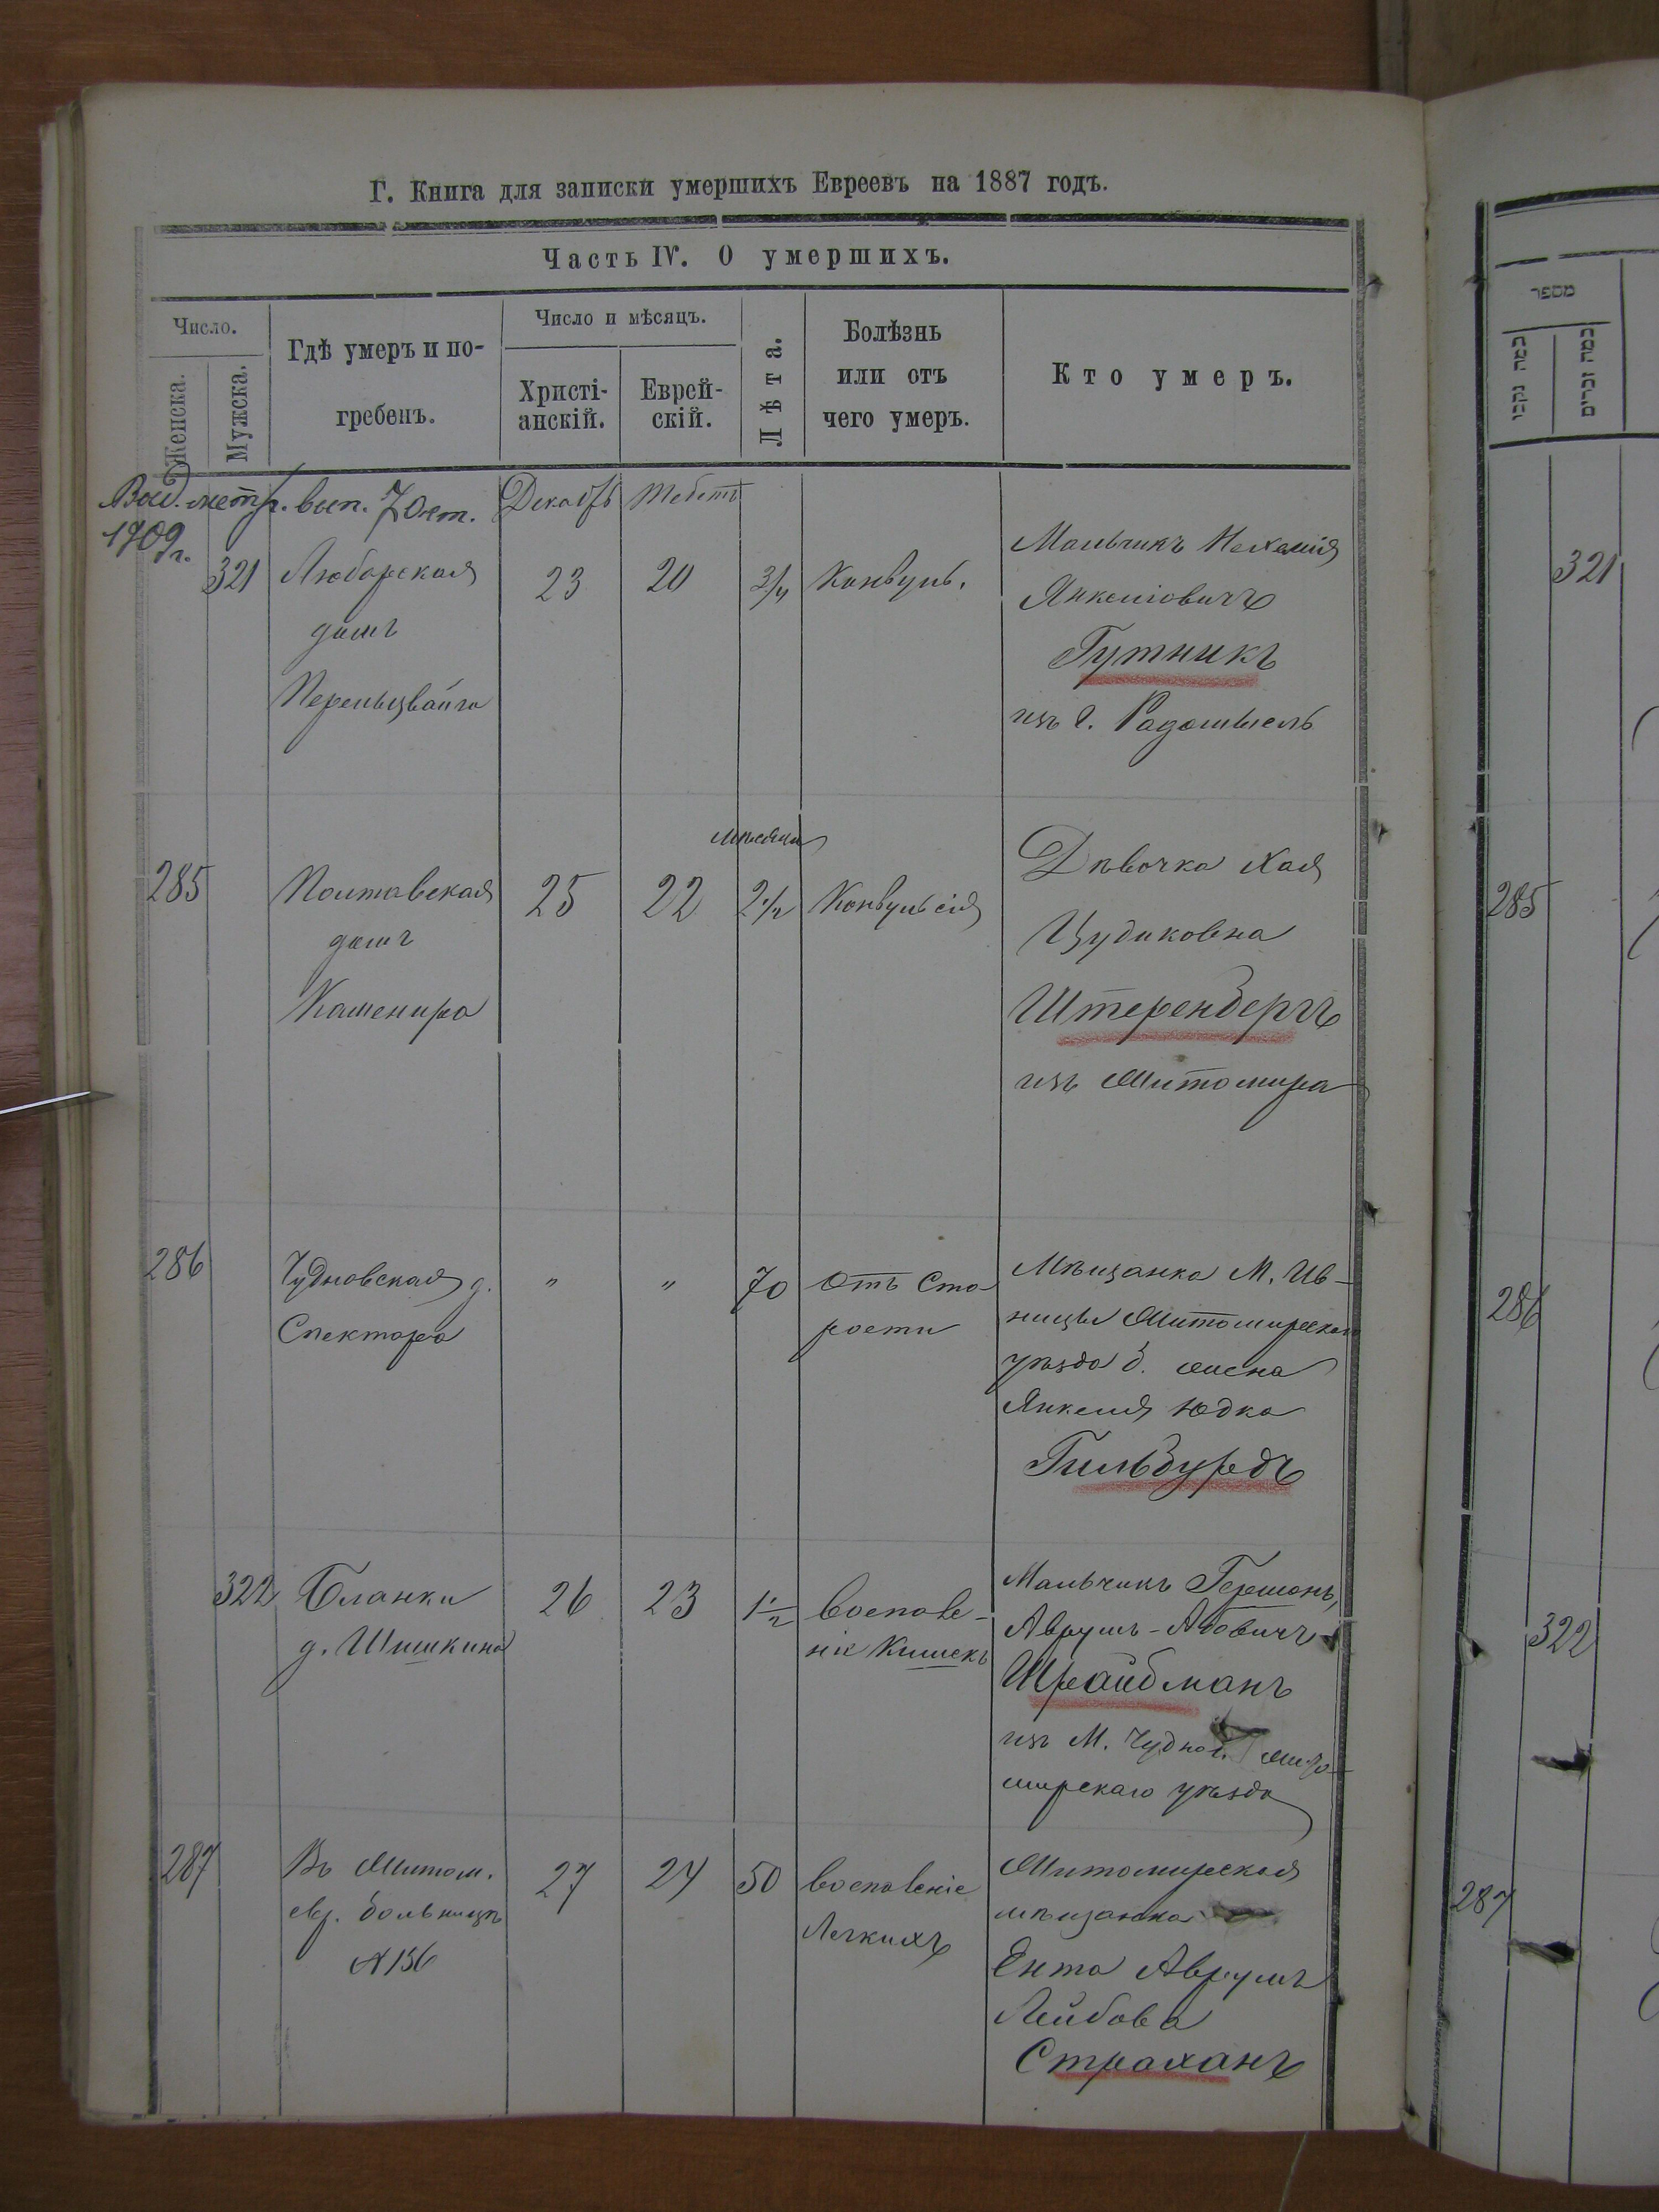 Г. Книга для записки умершихъ Евреевъ на 1887 годъ.
Часть IV. О умершихъ.
Число.
Женска.
Мужска.
Гдѣ умеръ и по-
гребенъ.
Число и мѣсяцъ.
Христі-
анскій.
Еврей-
скій.
Лѣта.
Болѣзнь
или отъ
чего умеръ.
Кто умеръ.
Выд. метр. вып. 7 Окт.
1909 г.
Декабрь
Тебетъ
321
Любарская
домъ
23
20
3/4
Конвуль.
Мальчикъ Нехемія
Янкеліовичъ
Гутникъ
изъ г. Радомысль
285
Полтавская
домъ
Каменира
25
22
мѣсяца
2 1/2
Конвульсія
Дѣвочка Хая
Цудиковна
Штеренбергъ
изъ Житомира
286
Чудновская д.
Спектора
"
"
70
отъ Ста
рости
Мѣщанка М. Ив-
ницы Житомирскаго
уѣзда б. жена
Янкеля Юдка
Гильбурдъ
322
Бланки
д. Шишкина
26
23
1 1/2
воспале-
ніе Кишекъ
Мальчикъ Гершонъ,
Аврумъ-Абовичъ
Шрайбманъ
изъ М. Чудно. Жито-
мирскаго уѣзда
287
Въ Житом.
евр. больницѣ
№ 136
27
24
50
воспаленіе
Легкихъ
Житомирская
мѣщанка
Ента Аврумъ
Лейбова
Страханъ
מספר
כמה נקבו
כמה זכרים
321
285
286
322
287